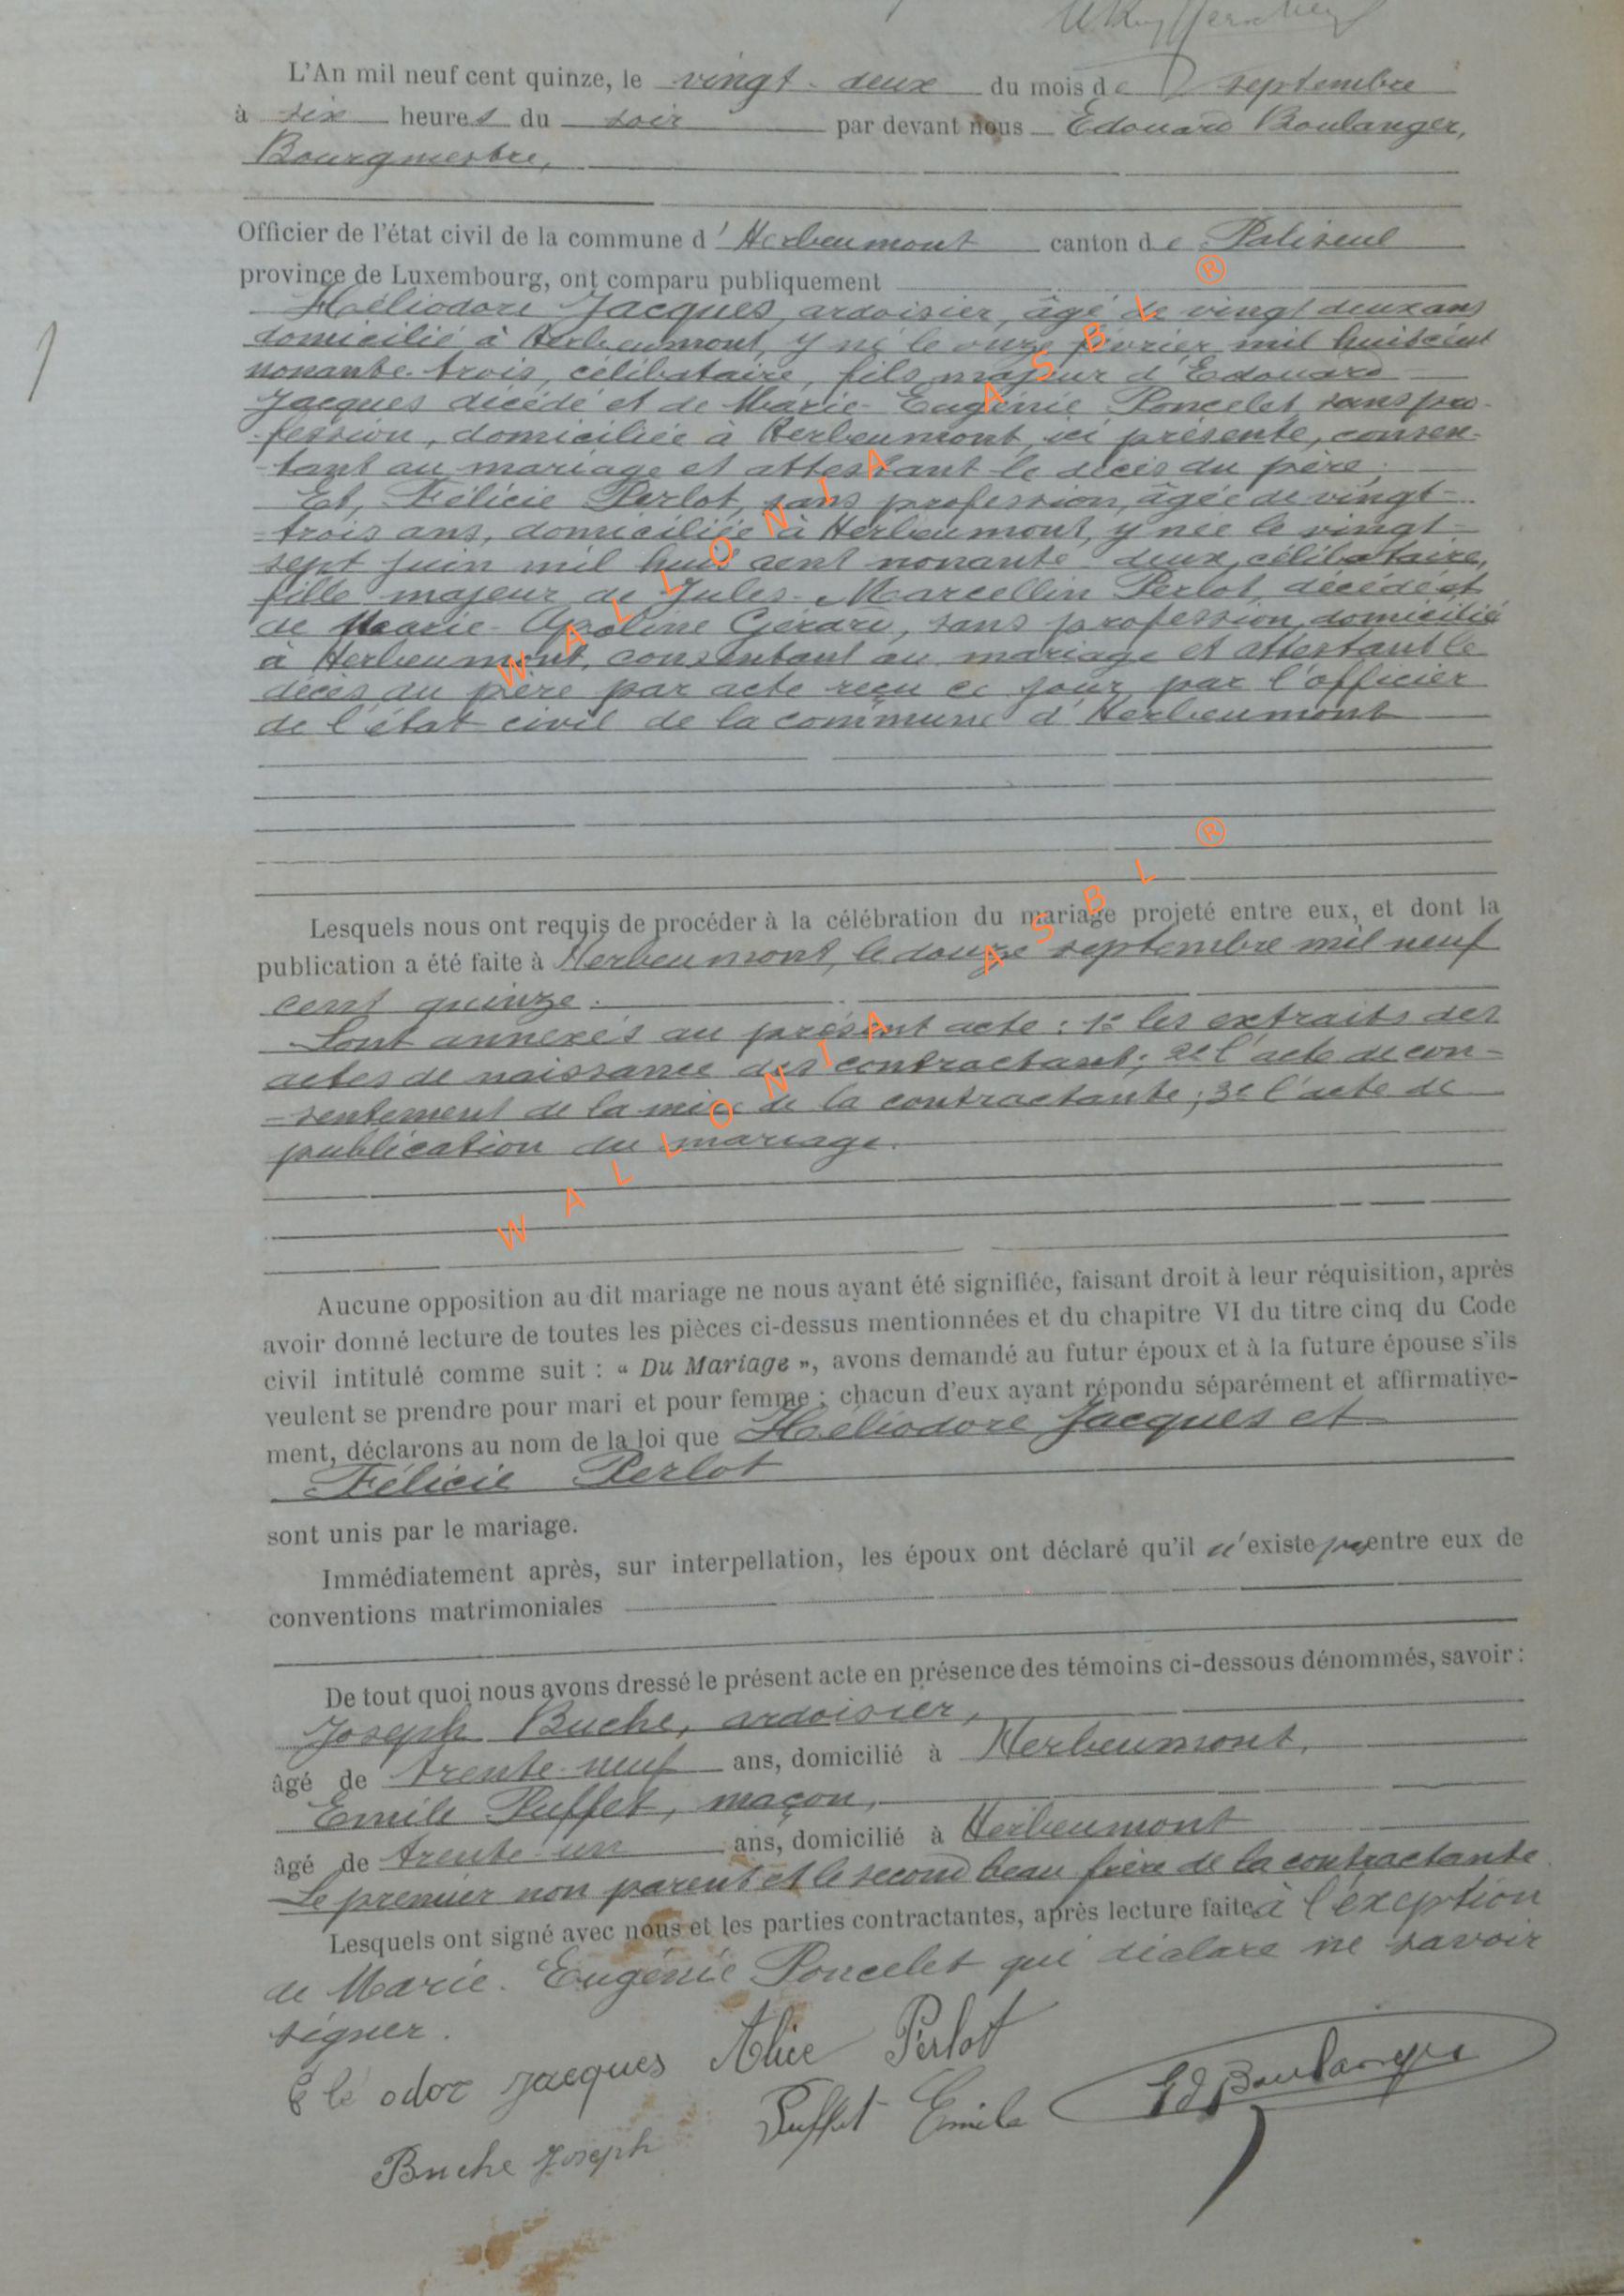 L'An mil neuf cent quinze, le vingt-deux du mois de septembre
à six heures du soir par devant nous Edouard Boulanger,
Bourgmestre,
Officier de l'état civil de la commune d'Herbeumont canton de Paliseul
province de Luxembourg, ont comparu publiquement
Héliodore Jacques, ardoisier, âgé de vingt deux ans
domicilié à Herbeumont, y né le onze février mil huit cent
nonante-trois, célibataire, fils majeur d'Edouard
Jacques décédé et de Marie-Eugénie Poncelet, sans pro-
-fession, domiciliée à Herbeumont, ici présente, consen-
-tant au mariage et attestant le décès du père;
Et, Félicie Perlot, sans profession, âgée de vingt-
-trois ans, domiciliée à Herbeumont, y née le vingt-
sept juin mil huit cent nonante-deux, célibataire,
fille majeur de Jules-Marcellin Perlot, décédé et
de Marie-Apoline Gérard, sans profession, domicilié
à Herbeumont, consentant au mariage et attestant le
décès du père par acte reçu ce jour par l'officier
de l'état civil de la commune d'Herbeumont
Lesquels nous ont requis de procéder à la célébration du mariage projeté entre eux, et dont la
publication a été faite à Herbeumont, le douze septembre mil neuf
cent quinze.
Sont annexés au présent acte: 1° les extraits des
actes de naissance des contractant; 2° l'acte de con-
-sentement de la mère de la contractante; 3° l'acte de
publication du mariage.
WALLONIA ASBL ®
WALLONIA ASBL ®
Aucune opposition au dit mariage ne nous ayant été signifiée, faisant droit à leur réquisition, après
avoir donné lecture de toutes les pièces ci-dessus mentionnées et du chapitre VI du titre cinq du Code
civil intitulé comme suit : « Du Mariage », avons demandé au futur époux et à la future épouse s'ils
veulent se prendre pour mari et pour femme ; chacun d'eux ayant répondu séparément et affirmative-
ment, déclarons au nom de la loi que Héliodore Jacques et
Félicie Perlot
sont unis par le mariage.
Immédiatement après, sur interpellation, les époux ont déclaré qu'il n'existe pas entre eux de
conventions matrimoniales
De tout quoi nous avons dressé le présent acte en présence des témoins ci-dessous dénommés, savoir :
Joseph Buche, ardoisier,
âgé de trente-neuf ans, domicilié à Herbeumont,
Emile Puffet, maçon,
âgé de trente-un ans, domicilié à Herbeumont
Le premier non parent et le second beau frère de la contractante
Lesquels ont signé avec nous et les parties contractantes, après lecture faite à l'éxception
de Marie-Eugénie Poncelet qui déclare ne savoir
signer.
Élé odor jacques Alice Perlot
Puffet Emile Ed Boulanger
Buche Joseph